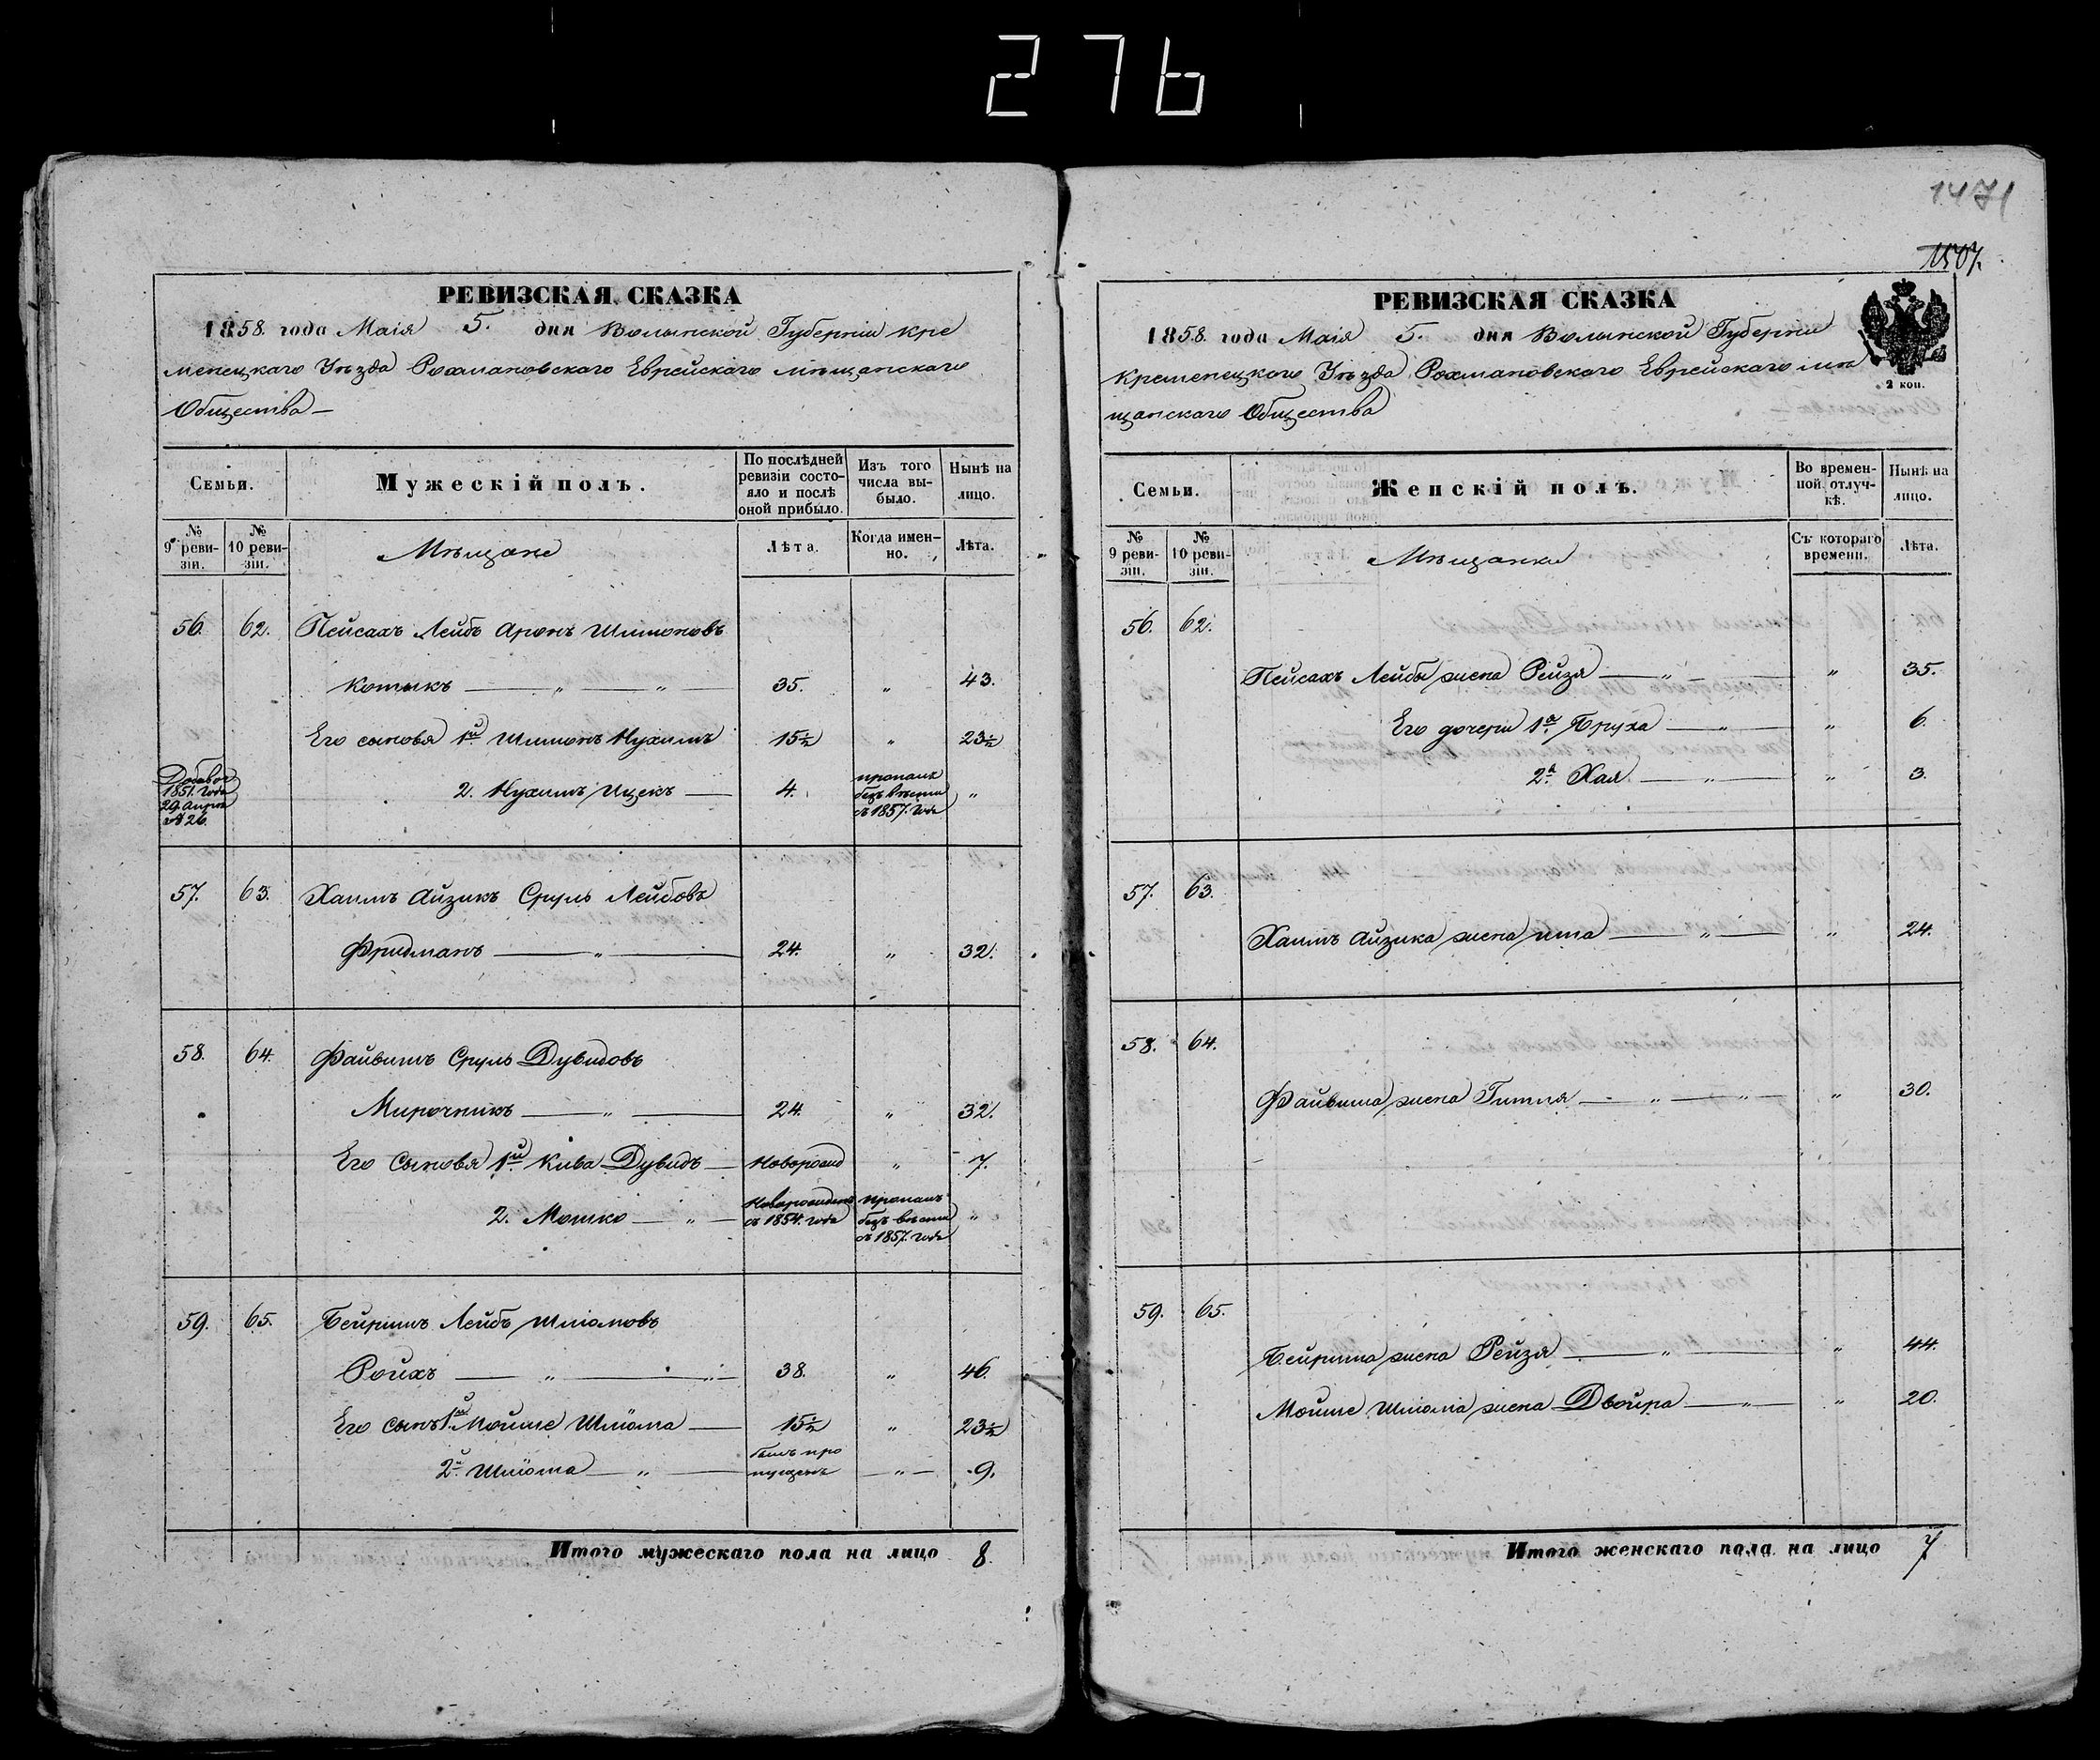 276
РЕВИЗСКАЯ СКАЗКА
1858. года Маія 5. дня Волынской Губерніи Кре
менецкаго Уѣзда Рохмановскаго Еврейскаго мѣщанскаго
Общества —
Семьи.
Мужескій полъ.
По послѣдней ревизіи состояло и послѣ оной прибыло.
Изъ того числа выбыло.
Нынѣ на лицо.
№ 9 ревизіи.
№ 10 ревизіи.
Мѣщане
Лѣта.
Когда именно.
Лѣта.
56. 62. Пейсахъ Лейбъ Аронъ Шимоновъ
Котыкъ — „ — „ — 35. „ 43.
Его сыновя 1й Шимонъ Нухимъ 15½ „ 23½
Добавоч 1851. года 29. Апрѣл № 26.
2. Нухимъ Ицекъ — 4. пропалъ безъ вѣсти съ 1857. года „
57. 63. Хаимъ Айзикъ Сруль Лейбовъ
Фридманъ — „ — 24. „ 32.
58. 64. Файвишъ Сруль Дувидовъ
Мирочникъ — „ — 24. „ 32.
Его Сыновя 1й Кива Дувидъ — Новорожд „ 7.
2. Мошко — „ — Новорожденъ съ 1854. года пропалъ безъ вѣсти съ 1857. года „
59. 65. Бейришъ Лейбъ Шліомовъ
Ройхъ — „ — „ — 38. „ 46.
Его сынъ 1й Мойше Шліома — 15½ „ 23½
2й Шліома — „ — былъ пропущенъ — „ — 9.
Итого мужескаго пола на лицо 8.
1471
1507.
РЕВИЗСКАЯ СКАЗКА
1858. года Маія 5. дня Волынской Губерніи
Кременецкого Уѣзда Рохмановскаго Еврейскаго мѣ
щанскаго Общества
2 коп.
Семьи.
Женскій полъ.
Во временной отлучкѣ.
Нынѣ на лицо.
№ 9 ревизіи.
№ 10 ревизіи.
Мѣщанки
Съ котораго времени.
Лѣта.
56. 62.
Пейсахъ Лейбы жена Рейзя — „ — „ 35.
Его дочери 1а Бруха — „ — „ 6.
2а Хая — „ — „ 3.
57. 63.
Хаимъ Айзика жена Ита — „ — „ 24.
58. 64.
Файвиша жена Гитля — „ — „ — „ 30.
59. 65.
Бейриша жена Рейзя — „ — „ 44.
Мойше Шліомы жена Двойра — „ — „ 20.
Итого женскаго пола на лицо 7